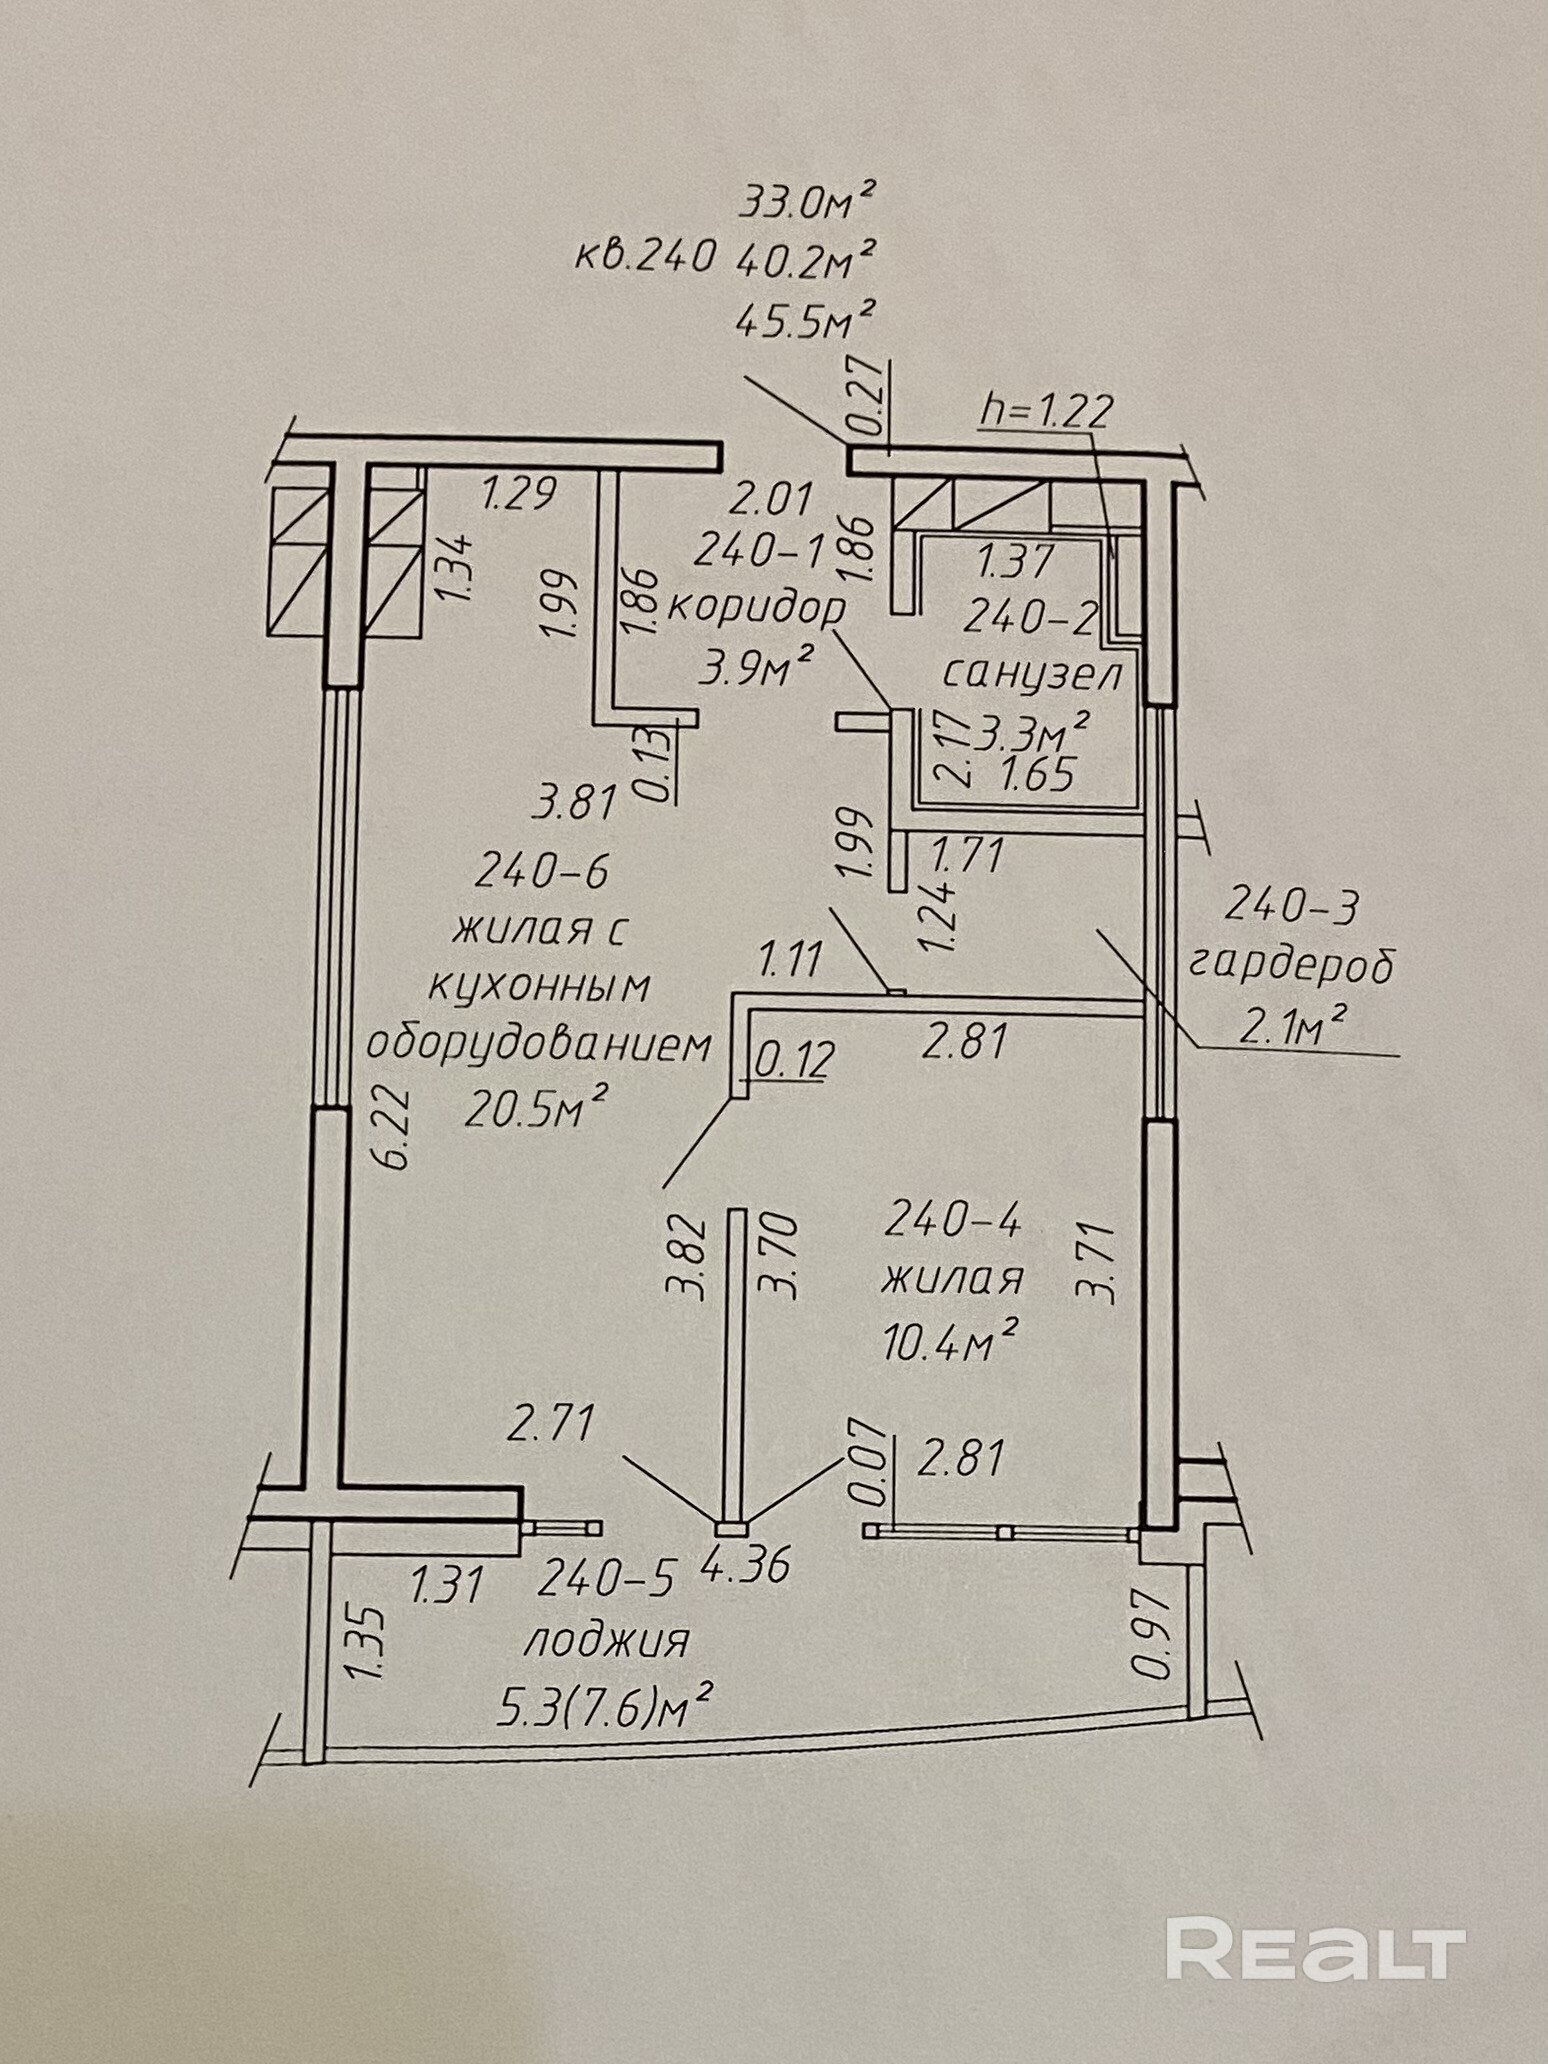 33.0м²
кв.240 40.2м²
45.5м²
0.27
h=1.22
1.29
2.01
1.34
1.99
1.86
240-1
коридор
3.9м²
1.86
1.37
240-2
санузел
3.3м²
2.17
1.65
0.13
3.81
1.99
1.71
1.24
240-6
жилая с
кухонным
оборудованием
20.5м²
240-3
гардероб
2.1м²
1.11
2.81
0.12
6.22
3.82
3.70
240-4
жилая
10.4м²
3.71
2.71
0.07
2.81
1.31
240-5
лоджия
5.3(7.6)м²
4.36
1.35
0.97
REALT